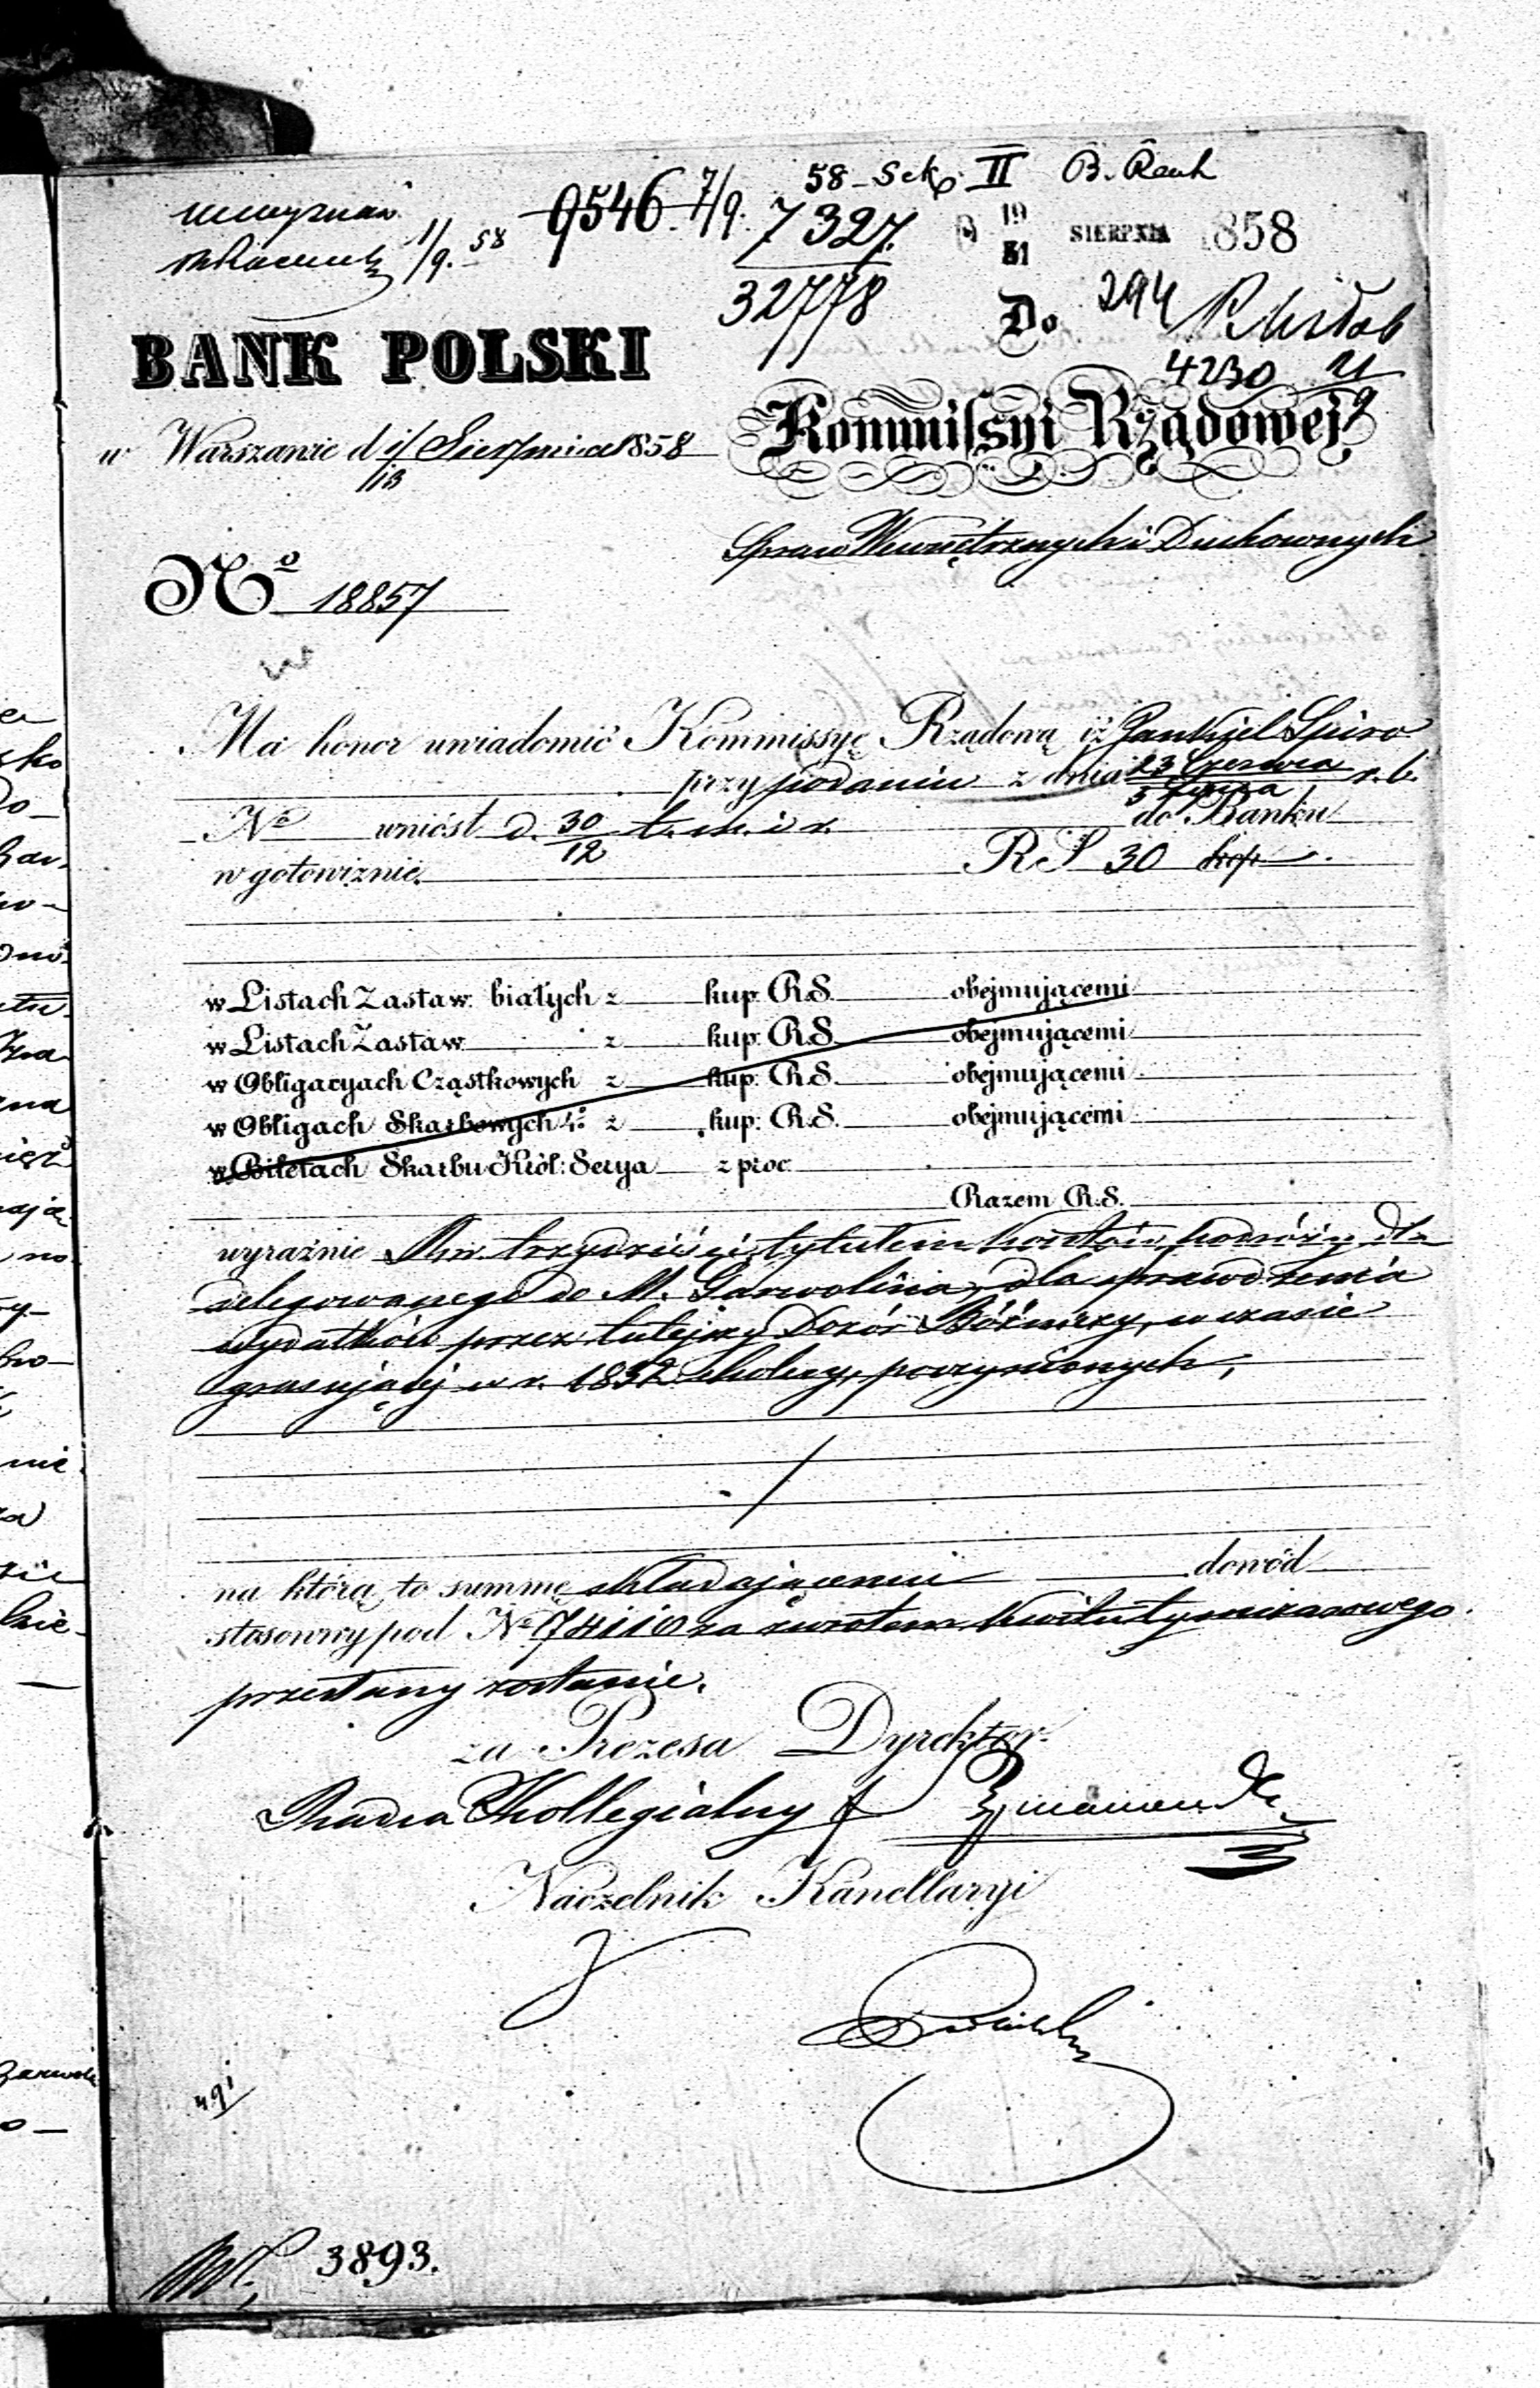 58 Sek. II B. Rauh
9546 7/9. 7327 19/31 SIERPNIA 1858
1/9. 58
32778
Do 294
4230
BANK POLSKI
Kommissyi Rządowej
w Warszawie d 1/13 Sierpnia 1858
Spraw Wewnętrznych i Duchownych
No 18857
Ma honor uwiadomić Kommissyę Rządową iż Jankiel Spiro
przy podaniu z dnia 23 Czerwca / 5 Lipca r. b.
No wniósł d. 30/12 t. m. i r. do Banku
w gotowiznie RS 30 kop —.
w Listach Zastaw: białych z kup: R.S. obejmującemi
w Listach Zastaw z kup: R.S. obejmującemi
w Obligacyach Cząstkowych z kup: R.S. obejmującemi
w Obligach Skarbowych 4% z kup: R.S. obejmującemi
w Biletach Skarbu Król: Serya z proc:
Razem R.S.
wyraźnie Rsr. trzydzieści, tytułem kosztów podróży dla
delegowanego do M. Garwolina, dla sprawdzenia
wydatków przez tutejszy Dozór Bóżniczy, w czasie
grasującej w r. 1852 cholery, poczynionych,
na którą to summę składającemu dowód
stosowny pod No 74110 za zwrotem kwitu tymczasowego
przesłany zostanie.
za Prezesa Dyrektor
Radca Kollegialny
Naczelnik Kancellaryi
3893.